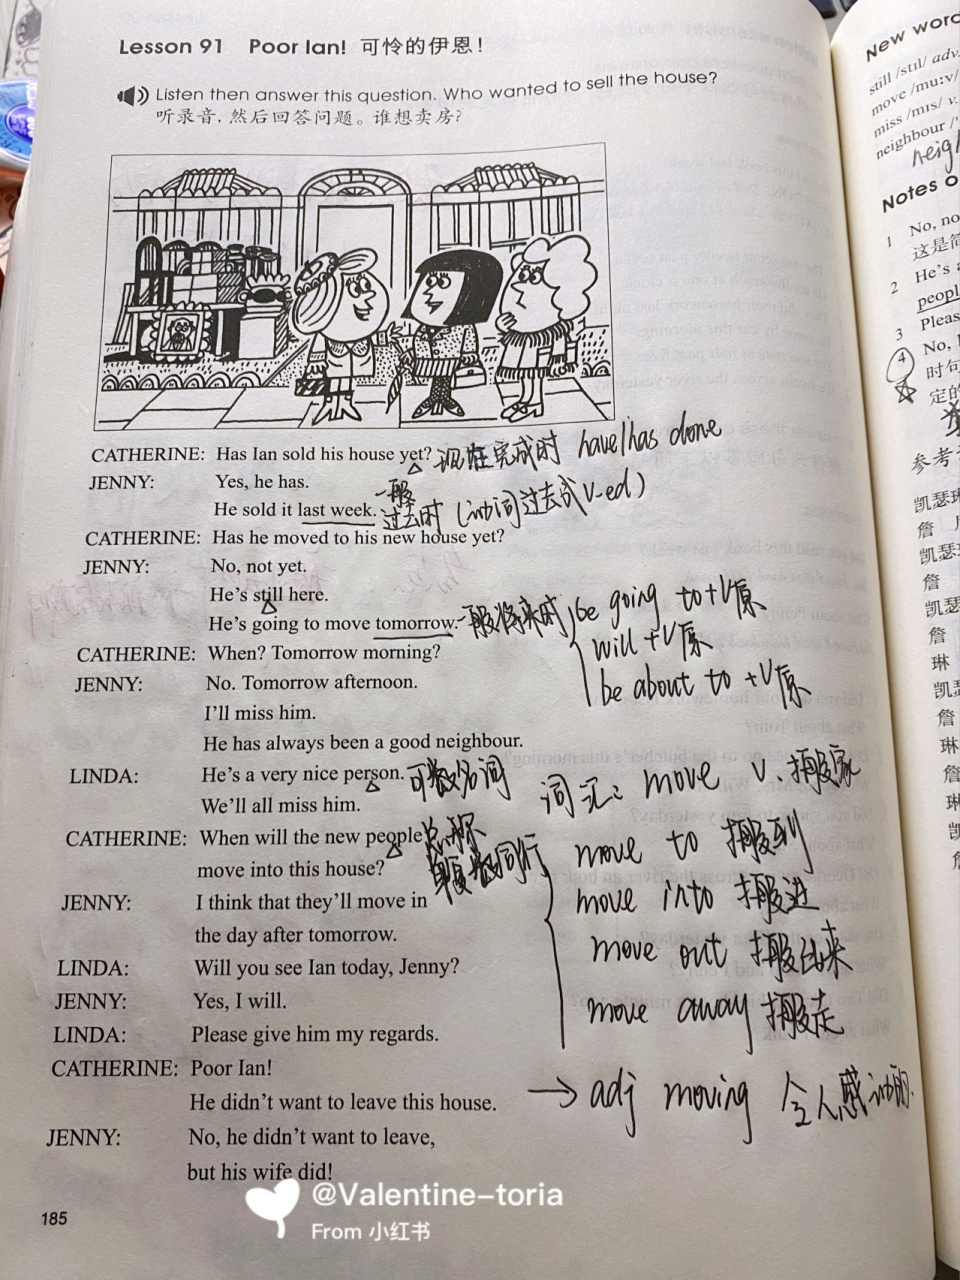 Lesson 91 Poor Ian! 可怜的伊恩！
Listen then answer this question. Who wanted to sell the house?
听录音，然后回答问题。谁想卖房？
CATHERINE: Has Ian sold his house yet? 现在完成时 have/has done
JENNY: Yes, he has.
He sold it last week. 一般过去时（动词过去式V-ed）
CATHERINE: Has he moved to his new house yet?
JENNY: No, not yet.
He's still here.
He's going to move tomorrow. 一般将来时 be going to+V原
will +V原
CATHERINE: When? Tomorrow morning?
be about to +V原
JENNY: No. Tomorrow afternoon.
I'll miss him.
He has always been a good neighbour.
LINDA: He's a very nice person. 可数名词
We'll all miss him.
move v. 搬家
CATHERINE: When will the new people 总称
move into this house?
move to 搬到
JENNY: I think that they'll move in
move into 搬进
the day after tomorrow.
move out 搬出来
LINDA: Will you see Ian today, Jenny?
JENNY: Yes, I will.
move away 搬走
LINDA: Please give him my regards.
CATHERINE: Poor Ian!
He didn't want to leave this house.
→ adj moving 令人感动的.
JENNY: No, he didn't want to leave,
but his wife did!
185
@Valentine-toria
From 小红书
New word
still /stɪl/ adv
move /muːv/
miss /mɪs/ v.
neighbour /'
neigh
Notes o
1 No, no
这是简
2 He's a
peopl
3 Pleas
4 No, I
时句
定的
参考
凯瑟
詹
凯瑟
詹
凯瑟
詹
琳
凯瑟
詹
琳
詹
琳
凯
詹